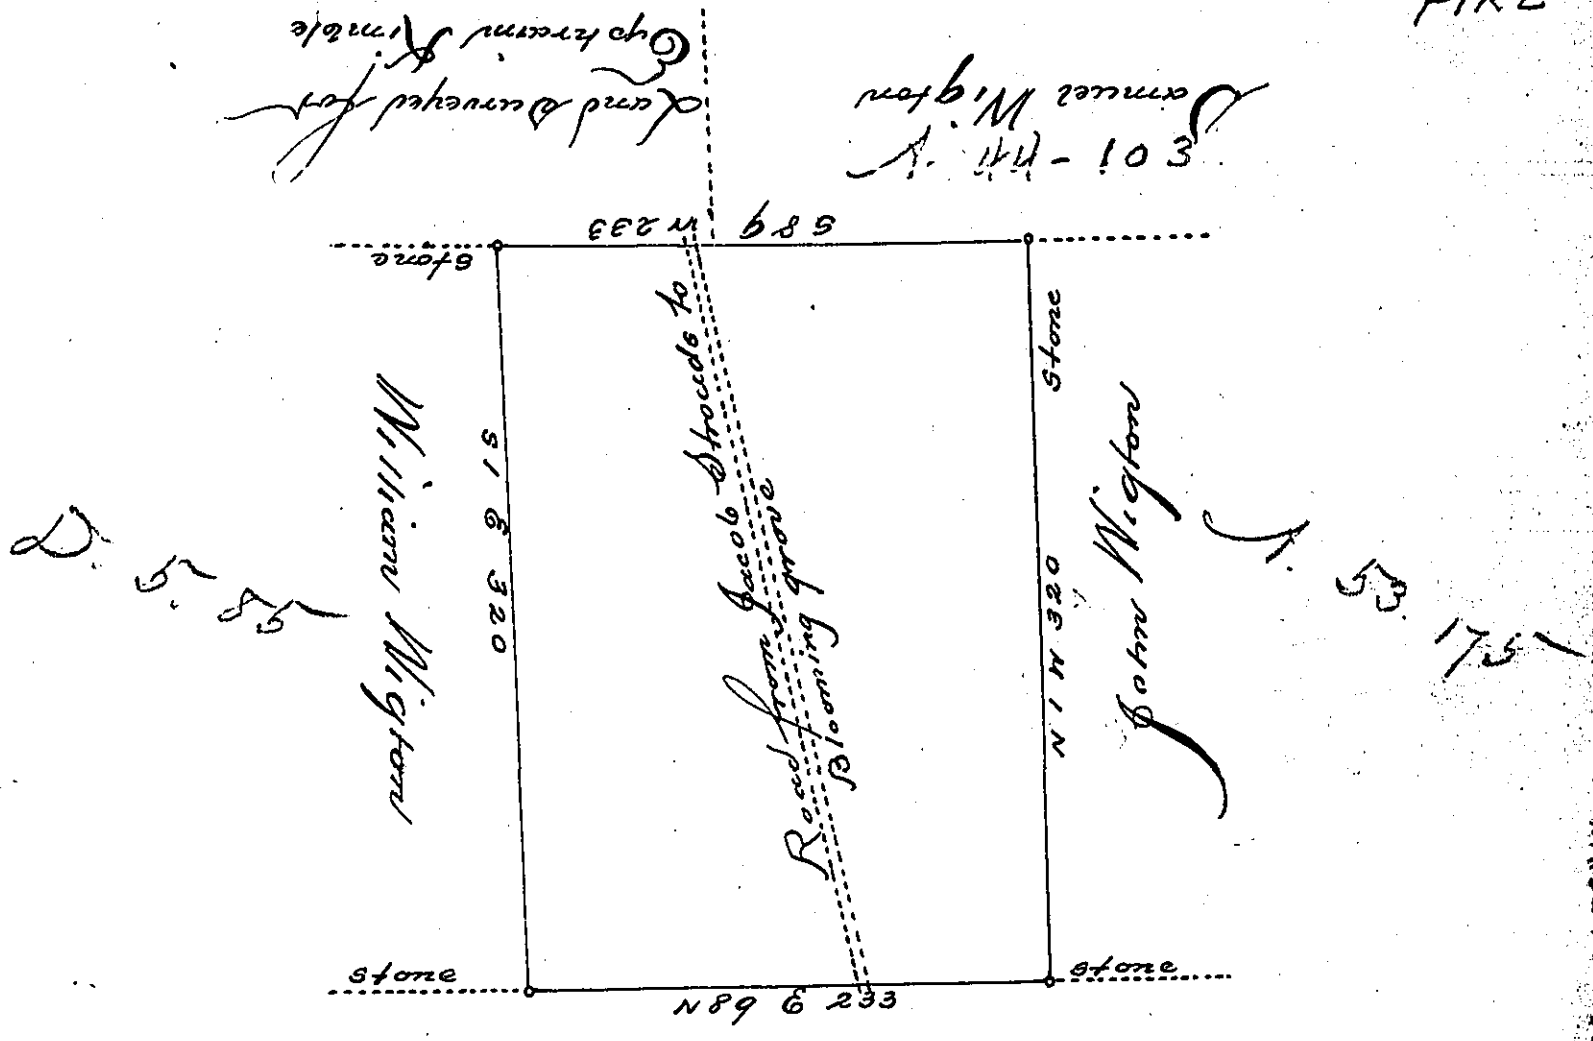 PIKE
Land Surveyed for
Ephraim Kimble
Samuel Wigton
S 89 W 233
stone
stone
William Wigton
S 1 E 320
D. 5. 85
Road from Jacob Strouds to
Blooming grove
N 1 W 320
John Wigton
A. 53. 175
stone
N 89 E 233
stone